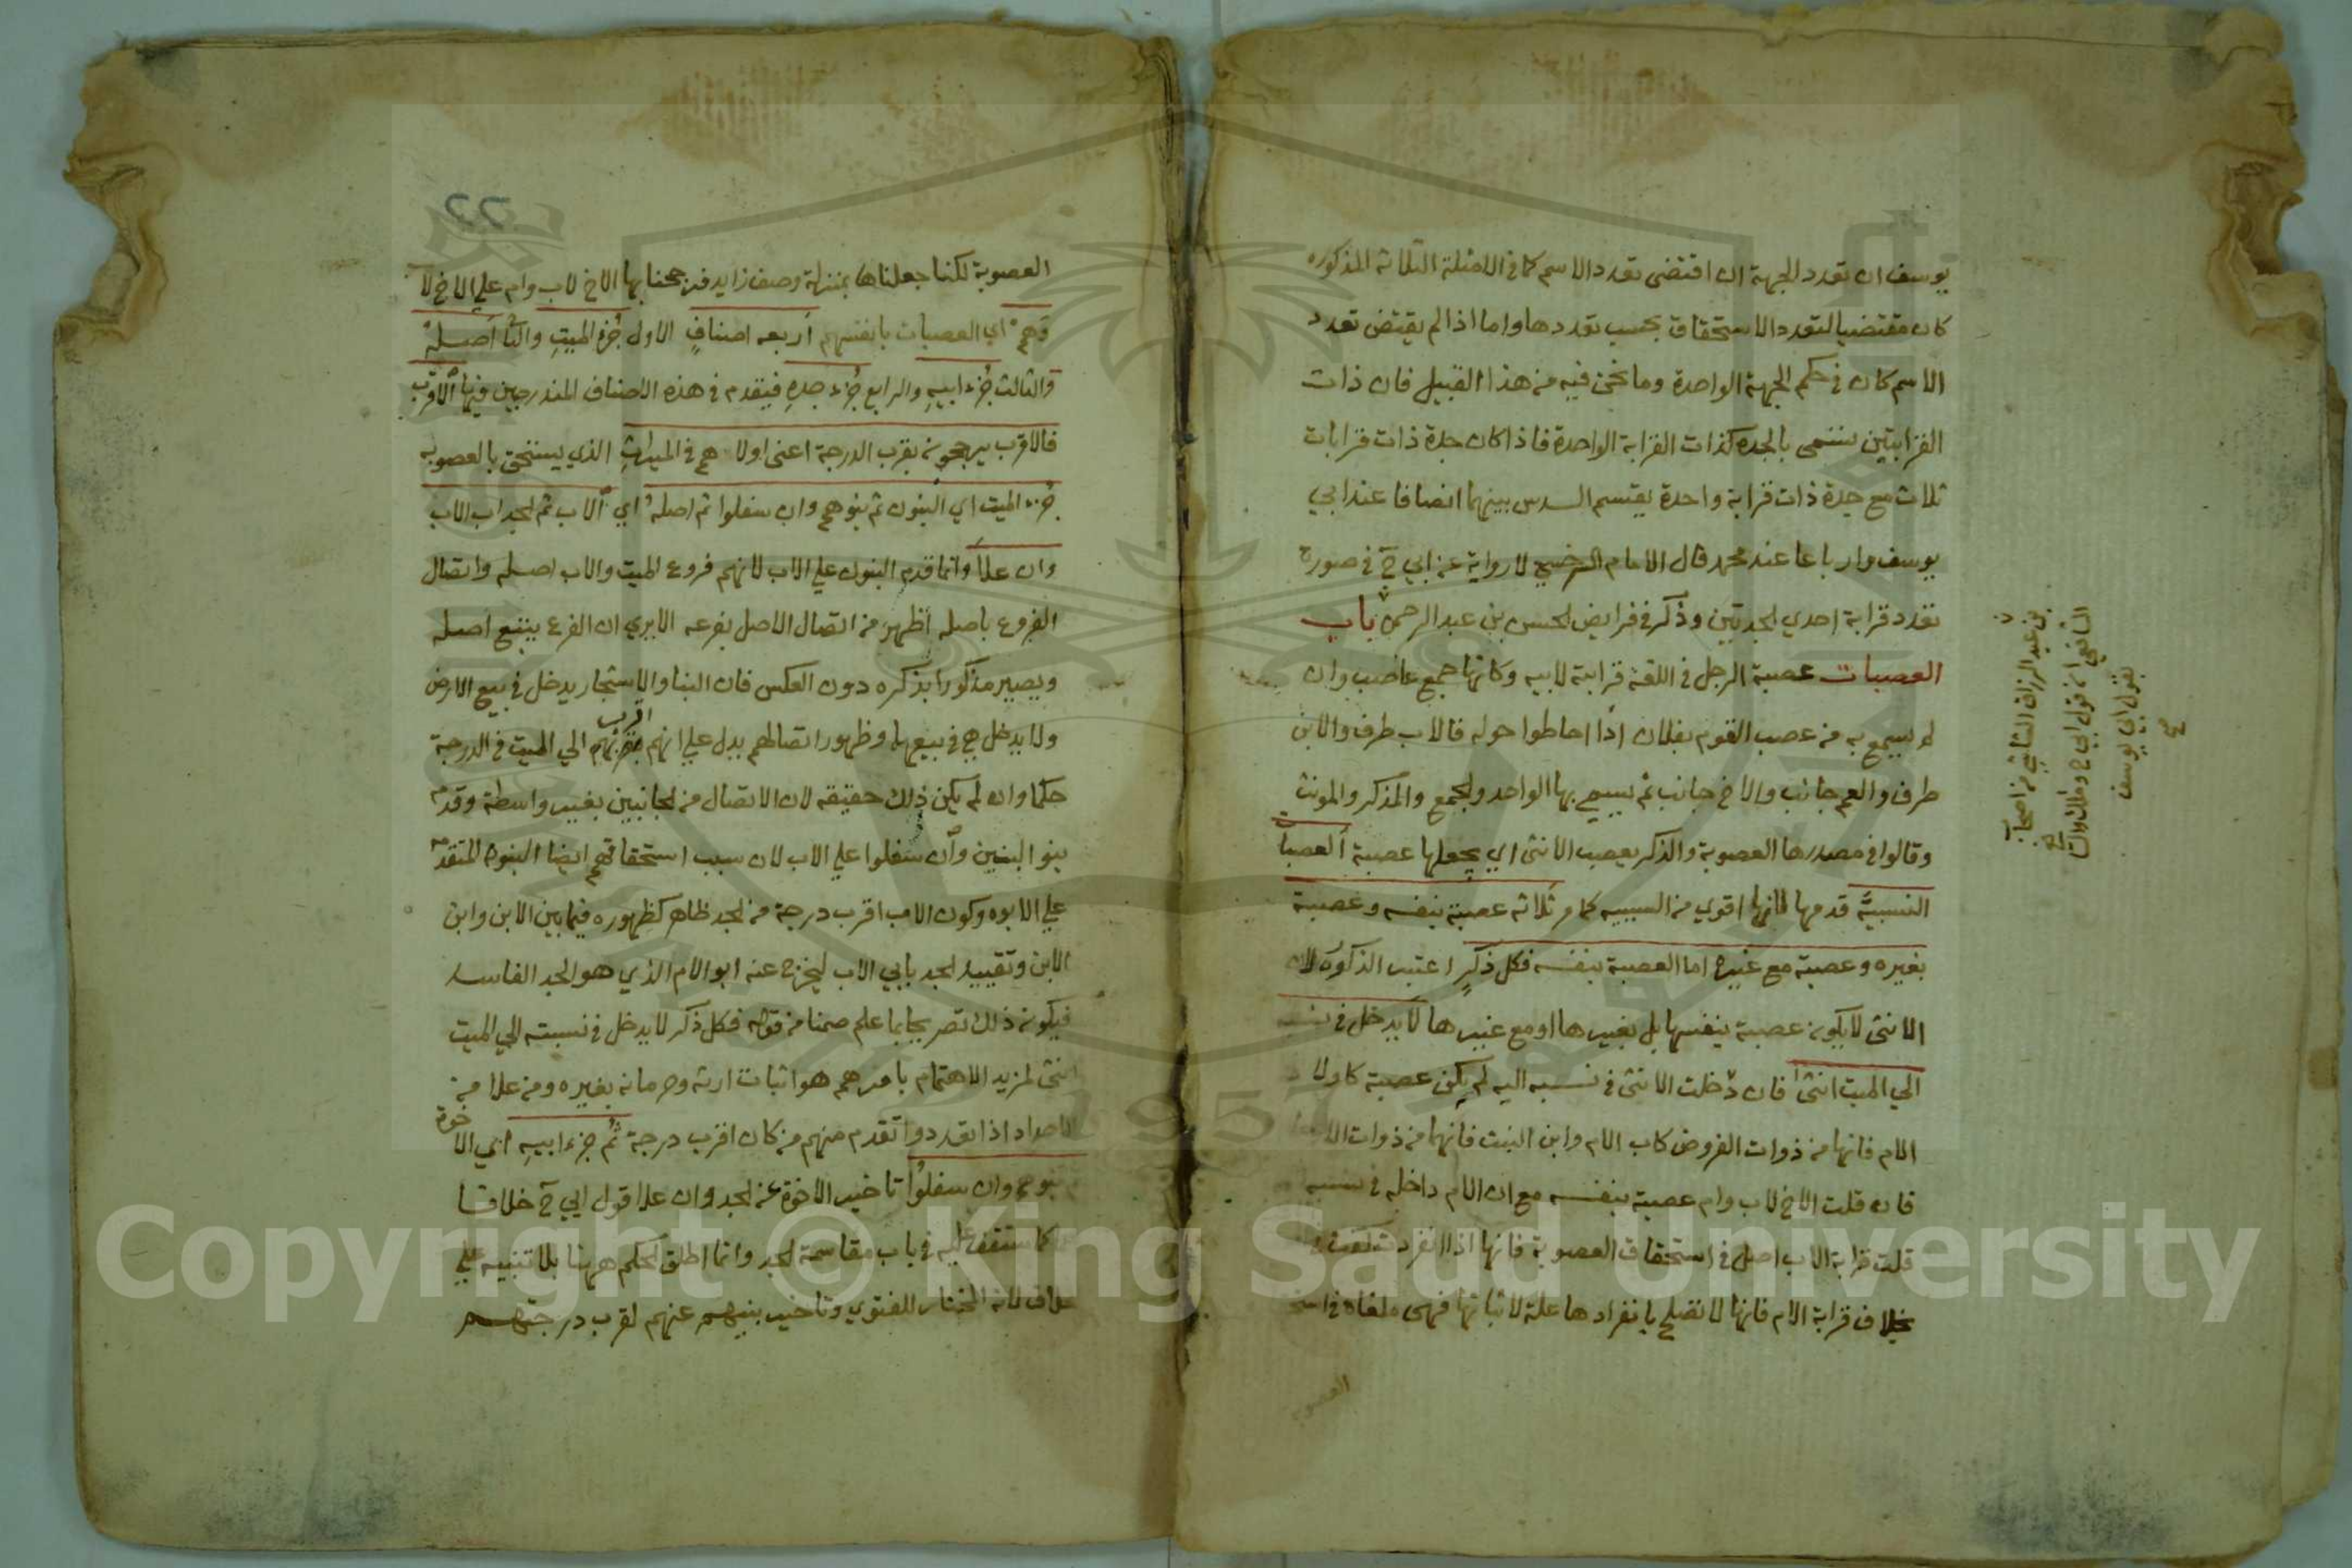 يوسف ان تعدد الجهة ان اقتضى تعدد الاسم كما في الامثلة الثلاثة المذكوره
كان مقتضيا لتعدد الاستحقاق بحسب تعددها واما اذا لم يقتض تعدد
الاسم كان في حكم الجهة الواحدة وما نحن فيه من هذا القبيل فان ذات
القرابتين تسمى بالجده كذات القرابة الواحدة فاذا كان جدة ذات قرابات
ثلاث مع جدة ذات قرابة واحدة يقتسم السدس بينهما انصافا عند ابي
يوسف وارباعا عند محمد قال الامام السرخسي لا رواية عن ابي ح في صورة
تعدد قرابة احدي الجدتين وذكر في فرايض الحسن بن عبد الرحمن باب
العصبات عصبة الرجل في اللغة قرابته لابيه وكانها جمع عاصب وان
لم يسمع به من عصب القوم بفلان اذا احاطوا حوله فالاب طرف والابن
طرف والعم جانب والاخ جانب ثم يسمي بها الواحد والجمع والمذكر والمونث
وقالوا في مصدرها العصوبة والذكر يعصب الانثى اي يجعلها عصبة العصبات
النسبية قدمها لانها اقوي من السببيه كما مر ثلاثه عصبة بنفسه وعصبة
بغيره وعصبة مع غيره اما العصبة بنفسه فكل ذكر اعتبر الذكورة لان
الانثى لا يكون عصبة بنفسها بل بغيرها او مع غيرها لا يدخل في
الي الميت انثى فان دخلت الانثى في نسبه اليه لم يكن عصبة كاولاد
الام فانها من ذوات الفروض كاب الام وابن البنت فانهما من ذوات
فان قلت الاخ لاب وام عصبة بنفسه مع ان الام داخله في نسبه
قلت قرابة الاب اصل في استحقاق العصوبة فانها اذا انفردت
بخلاف قرابة الام فانها لا تصلح بانفرادها علة لاثباتها فهي ملغاة في
العصوبة
بن عبد الرزاق الشاشي من اصحاب
الشافعي ان قول ابي ح ومالك و
كقول ابي يوسف
٢٢
العصوبة لكنا جعلناها بمنزلة وصف زايد فرجحنا بها الاخ لاب وام علي الاخ لا
وهم اي العصبات بانفسهم اربعه اصناف الاول جزء الميت والثا اصله
والثالث جزء ابيه والرابع جزء جده فيقدم في هذه الاصناف المندرجين فيها الاقرب
فالاقرب يرجحون بقرب الدرجة اعنى اولاهم في الميراث الذي يستحق بالعصوبه
جزء الميت اي البنون ثم بنوهم وان سفلوا ثم اصله اي الاب ثم الجد اب الاب
وان علا وانما قدم البنون علي الاب لانهم فروع الميت والاب اصله واتصال
الفروع باصله اظهر من اتصال الاصل بفرعه الا يري ان الفرع يتبع اصله
ويصير مذكورا بذكره دون العكس فان البنا والاشجار يدخل في بيع الارض
ولا يدخل هي في بيعها وظهور اتصالهم يدل علي انهم اقرب الي الميت في الدرجة
حكما وان لم يكن ذلك حقيقه لان الاتصال من الجانبين بغير واسطة وقدم
بنو البنين وان سفلوا علي الاب لان سبب استحقاقهم ايضا البنوة المتقدمة
علي الابوه وكون الاب اقرب درجة من الجد ظاهر كظهوره فيما بين الابن وابن
الابن وتقييد الجد بابي الاب ليخرج عنه ابو الام الذي هو الجد الفاسد
فيكون ذلك تصريحا بما علم ضمنا من قوله فكل ذكر لا يدخل في نسبته الي الميت
انثى لمزيد الاهتمام بامرهم هو اثبات ارثه وحرمانه بغيره ومن علا من
الاجداد اذا تعددوا تقدم منهم من كان اقرب درجة ثم جزء ابيه اي الاخوة
بنوهم وان سفلوا تاخير الاخوة عن الجد وان علا قول ابي ح خلافا
كما ستقف عليه في باب مقاسمة الجد وانما اطلق الحكم ههنا بلا تنبيه علي
خلاف لانه المختار للفتوي وتاخير بنيهم عنهم لقرب درجتهم
Copyright © King Saud University
1957